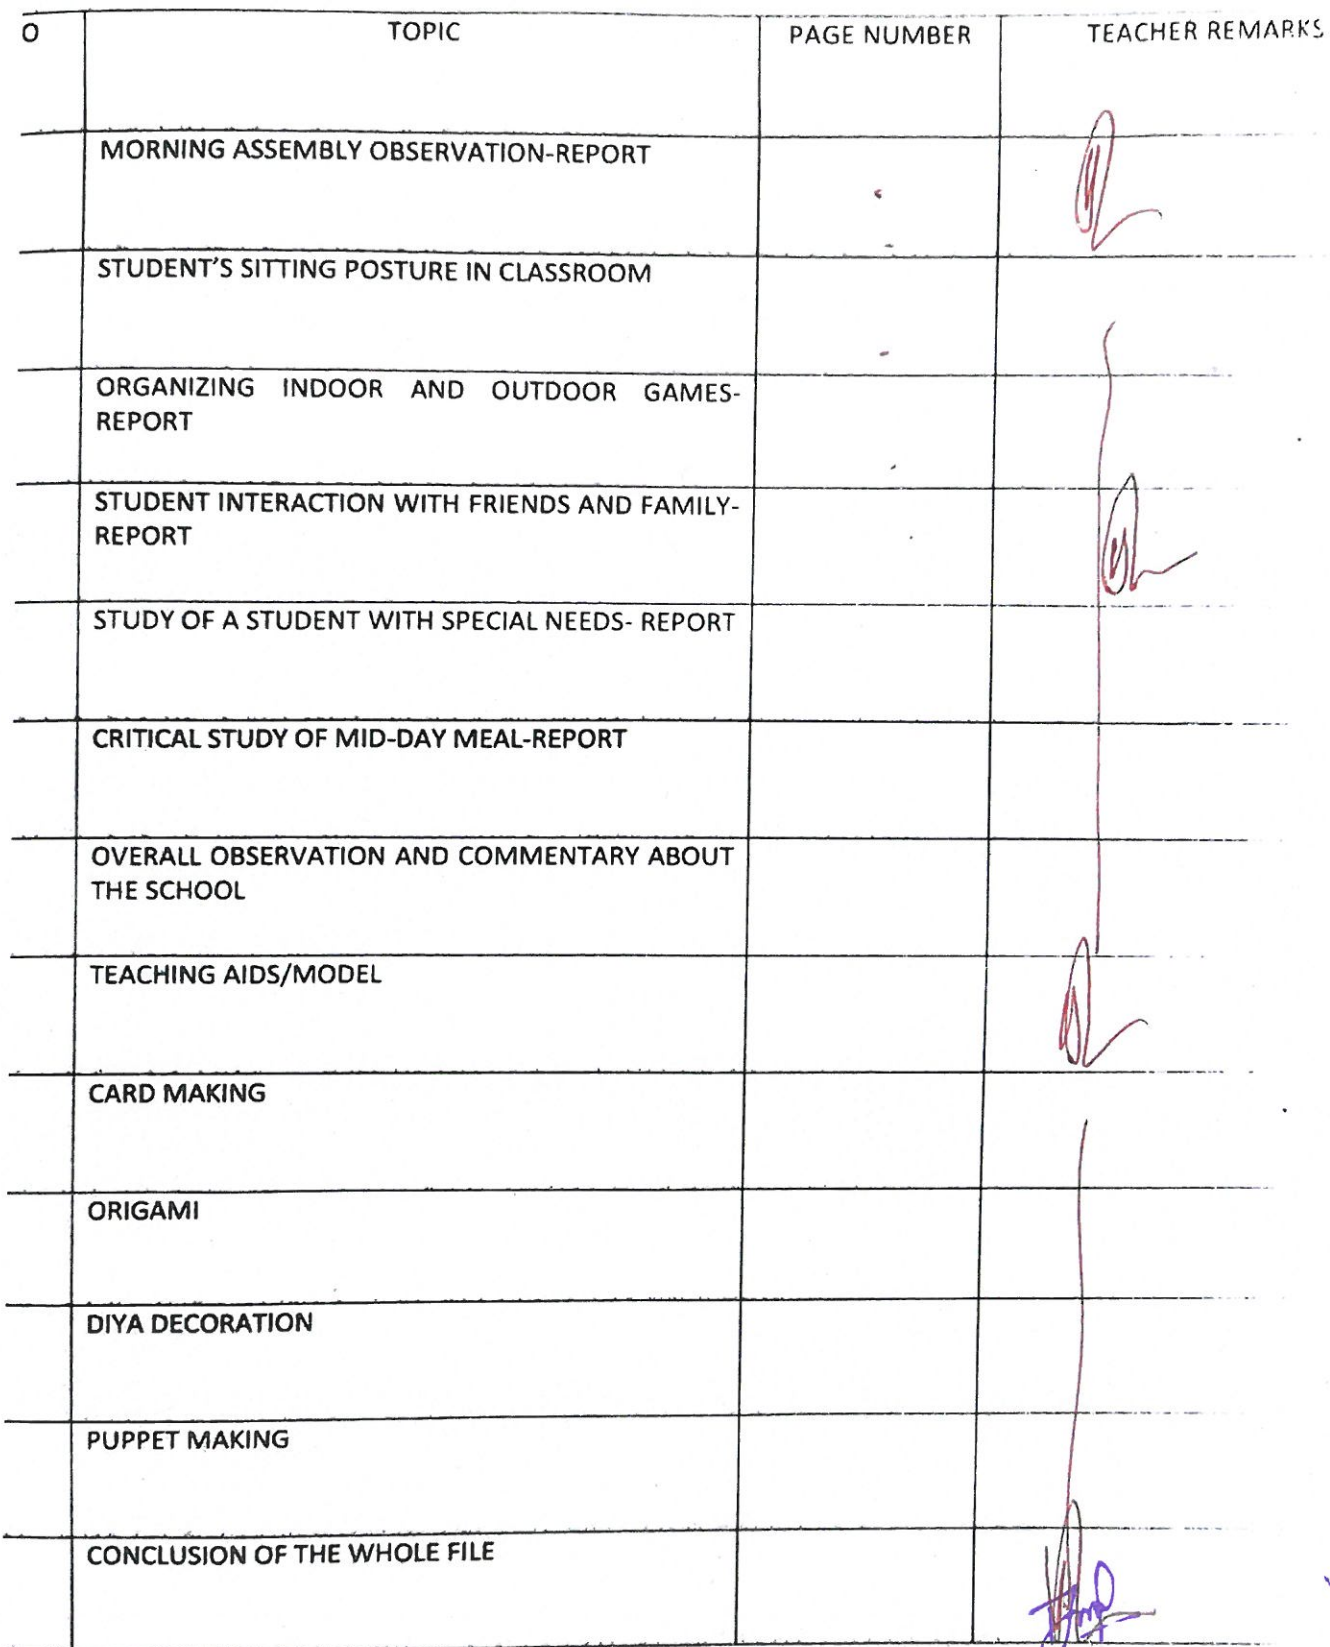 O TOPIC PAGE NUMBER TEACHER REMARKS
MORNING ASSEMBLY OBSERVATION-REPORT
STUDENT'S SITTING POSTURE IN CLASSROOM
ORGANIZING INDOOR AND OUTDOOR GAMES-
REPORT
STUDENT INTERACTION WITH FRIENDS AND FAMILY-
REPORT
STUDY OF A STUDENT WITH SPECIAL NEEDS- REPORT
CRITICAL STUDY OF MID-DAY MEAL-REPORT
OVERALL OBSERVATION AND COMMENTARY ABOUT
THE SCHOOL
TEACHING AIDS/MODEL
CARD MAKING
ORIGAMI
DIYA DECORATION
PUPPET MAKING
CONCLUSION OF THE WHOLE FILE